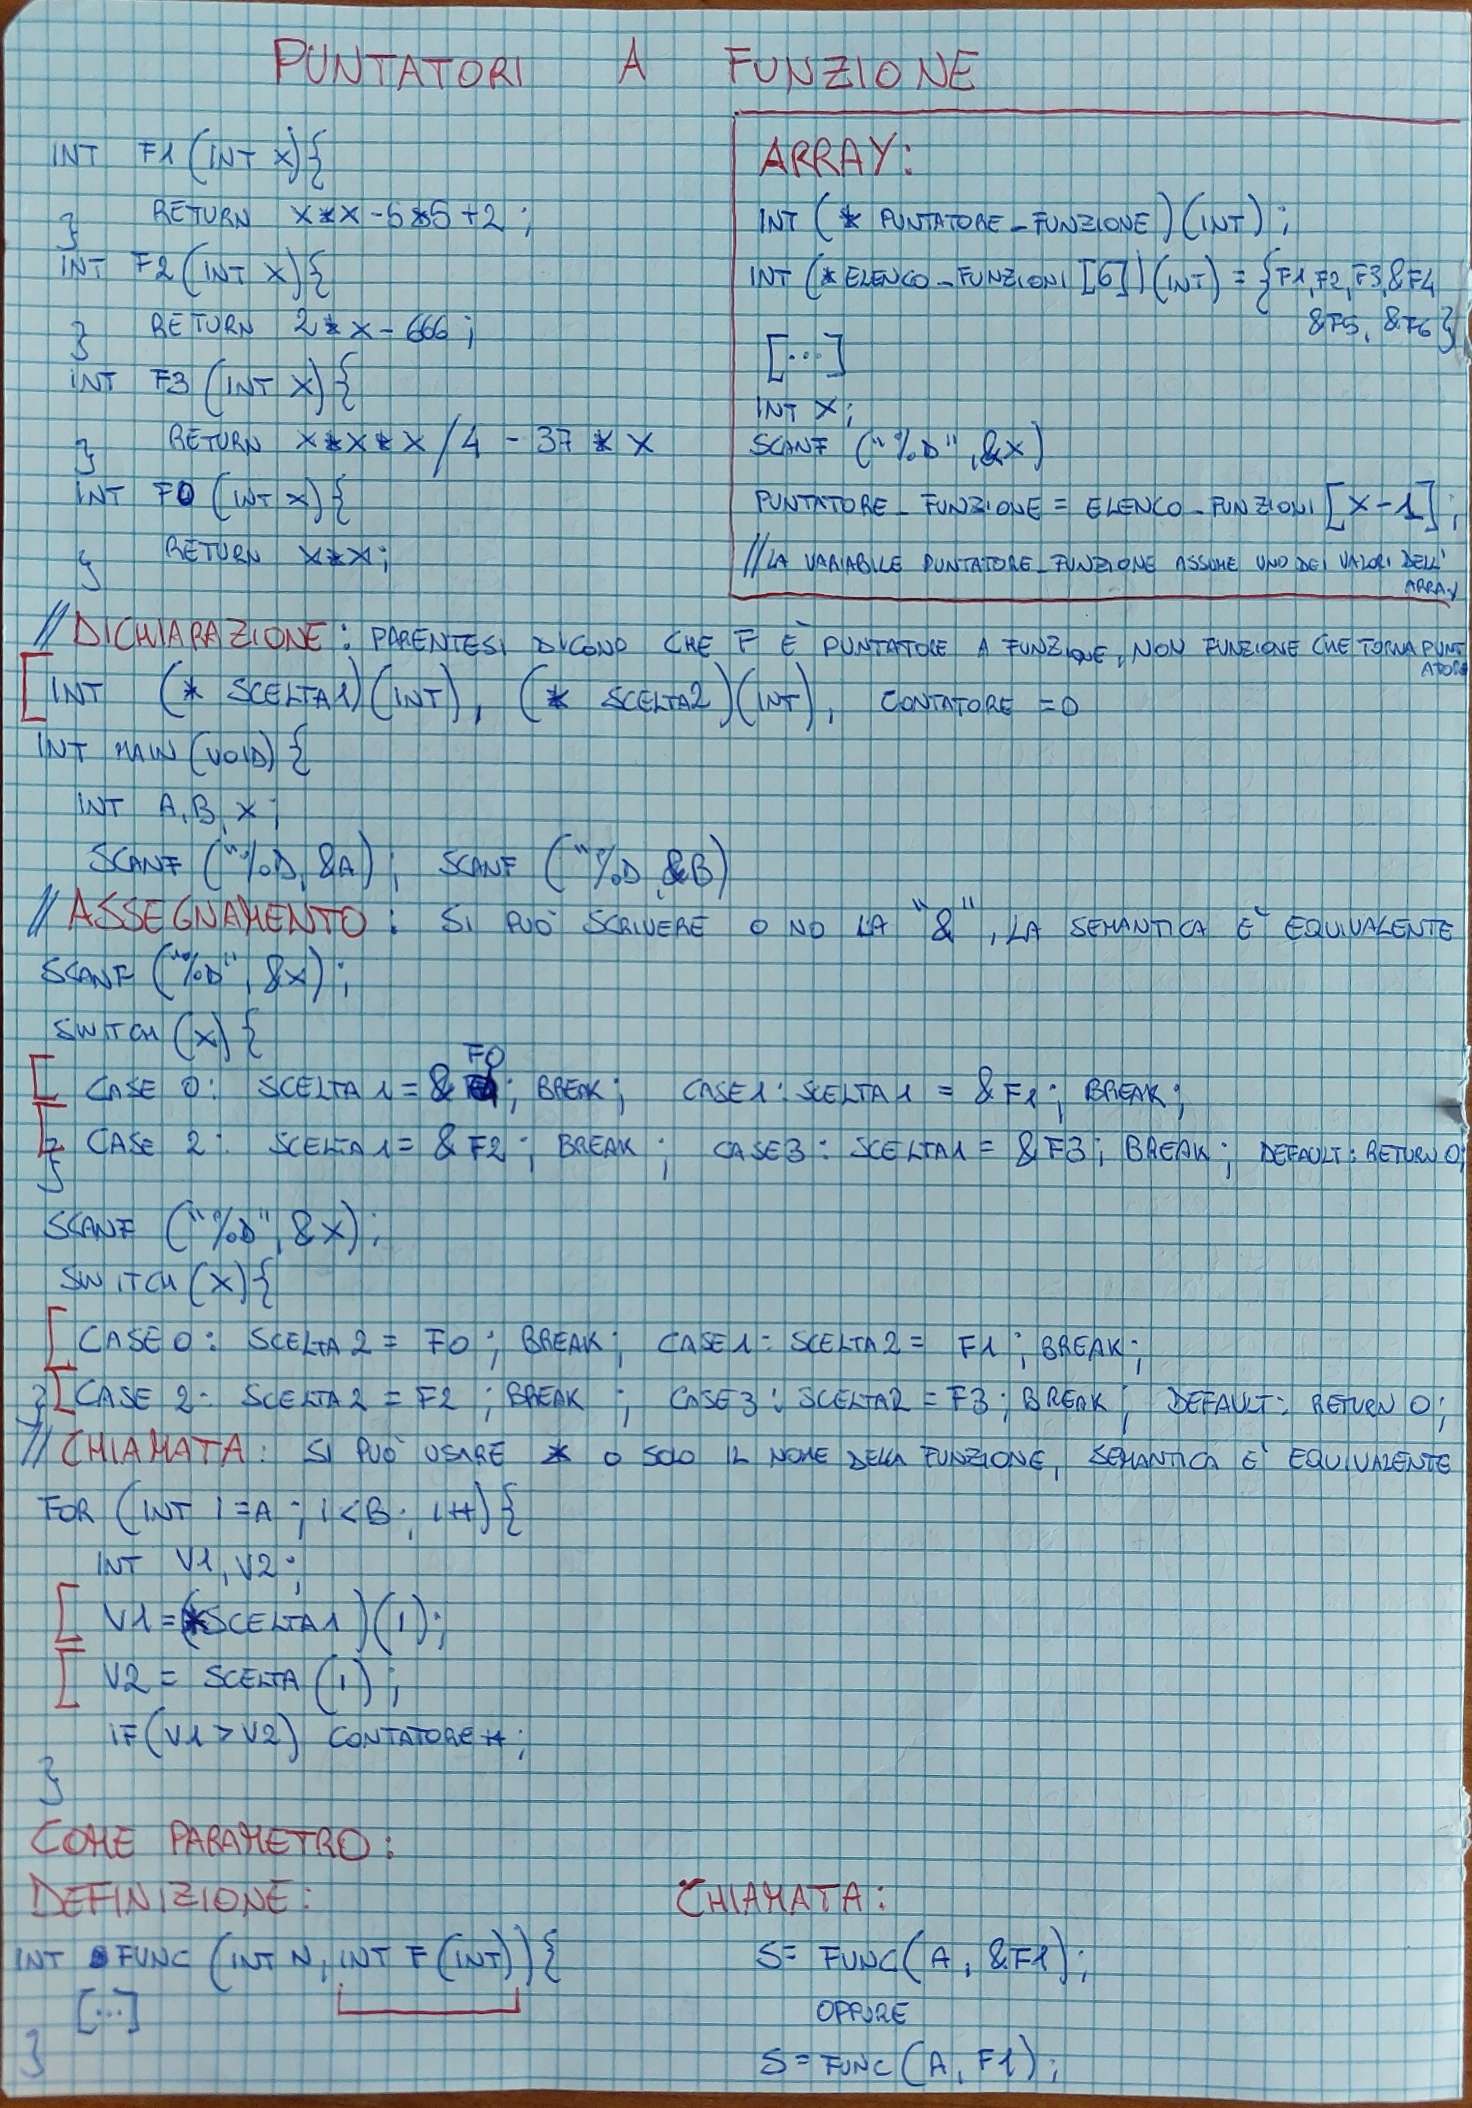 PUNTATORI A FUNZIONE
INT F1 (INT X){
RETURN X*X-5*5+2;
}
INT F2 (INT X){
RETURN 2*X-666;
}
INT F3 (INT X){
RETURN X*X*X/4 - 37 * X
}
INT F0 (INT X){
RETURN X*X;
}
ARRAY:
INT (* PUNTATORE_FUNZIONE)(INT);
INT (*ELENCO_FUNZIONI [6])(INT) = {F1,F2,F3,&F4
&F5, &F6}
[...]
INT X;
SCANF ("%D",&X)
PUNTATORE_FUNZIONE = ELENCO_FUNZIONI [X-1];
//LA VARIABILE PUNTATORE_FUNZIONE ASSUME UNO DEI VALORI DELL'
ARRAY
//DICHIARAZIONE: PARENTESI DICONO CHE F È PUNTATORE A FUNZIONE, NON FUNZIONE CHE TORNA PUNT
ATORE
INT (* SCELTA1)(INT), (* SCELTA2)(INT), CONTATORE =0
INT MAIN (VOID) {
INT A,B,X;
SCANF ("%D, &A); SCANF ("%D, &B)
//ASSEGNAMENTO: SI PUÒ SCRIVERE O NO LA "&", LA SEMANTICA È EQUIVALENTE
SCANF ("%D", &X);
SWITCH (X) {
CASE 0: SCELTA1 = &F0; BREAK; CASE1: SCELTA1 = &F1; BREAK;
CASE 2: SCELTA1 = &F2; BREAK; CASE3: SCELTA1 = &F3; BREAK; DEFAULT: RETURN 0;
}
SCANF ("%D", &X);
SWITCH (X){
CASE 0: SCELTA2 = F0; BREAK; CASE1: SCELTA2 = F1; BREAK;
} CASE 2: SCELTA2 = F2; BREAK; CASE3: SCELTA2 = F3; BREAK; DEFAULT: RETURN 0;
//CHIAMATA: SI PUÒ USARE * O SOLO IL NOME DELLA FUNZIONE, SEMANTICA È EQUIVALENTE
FOR (INT I=A; I<B; I++){
INT V1,V2;
V1=(*SCELTA1)(I);
V2= SCELTA (I);
IF(V1>V2) CONTATORE++;
}
COME PARAMETRO:
DEFINIZIONE:
INT FUNC (INT N, INT F(INT)){
[...]
}
CHIAMATA:
S= FUNC(A, &F1);
OPPURE
S= FUNC(A, F1);